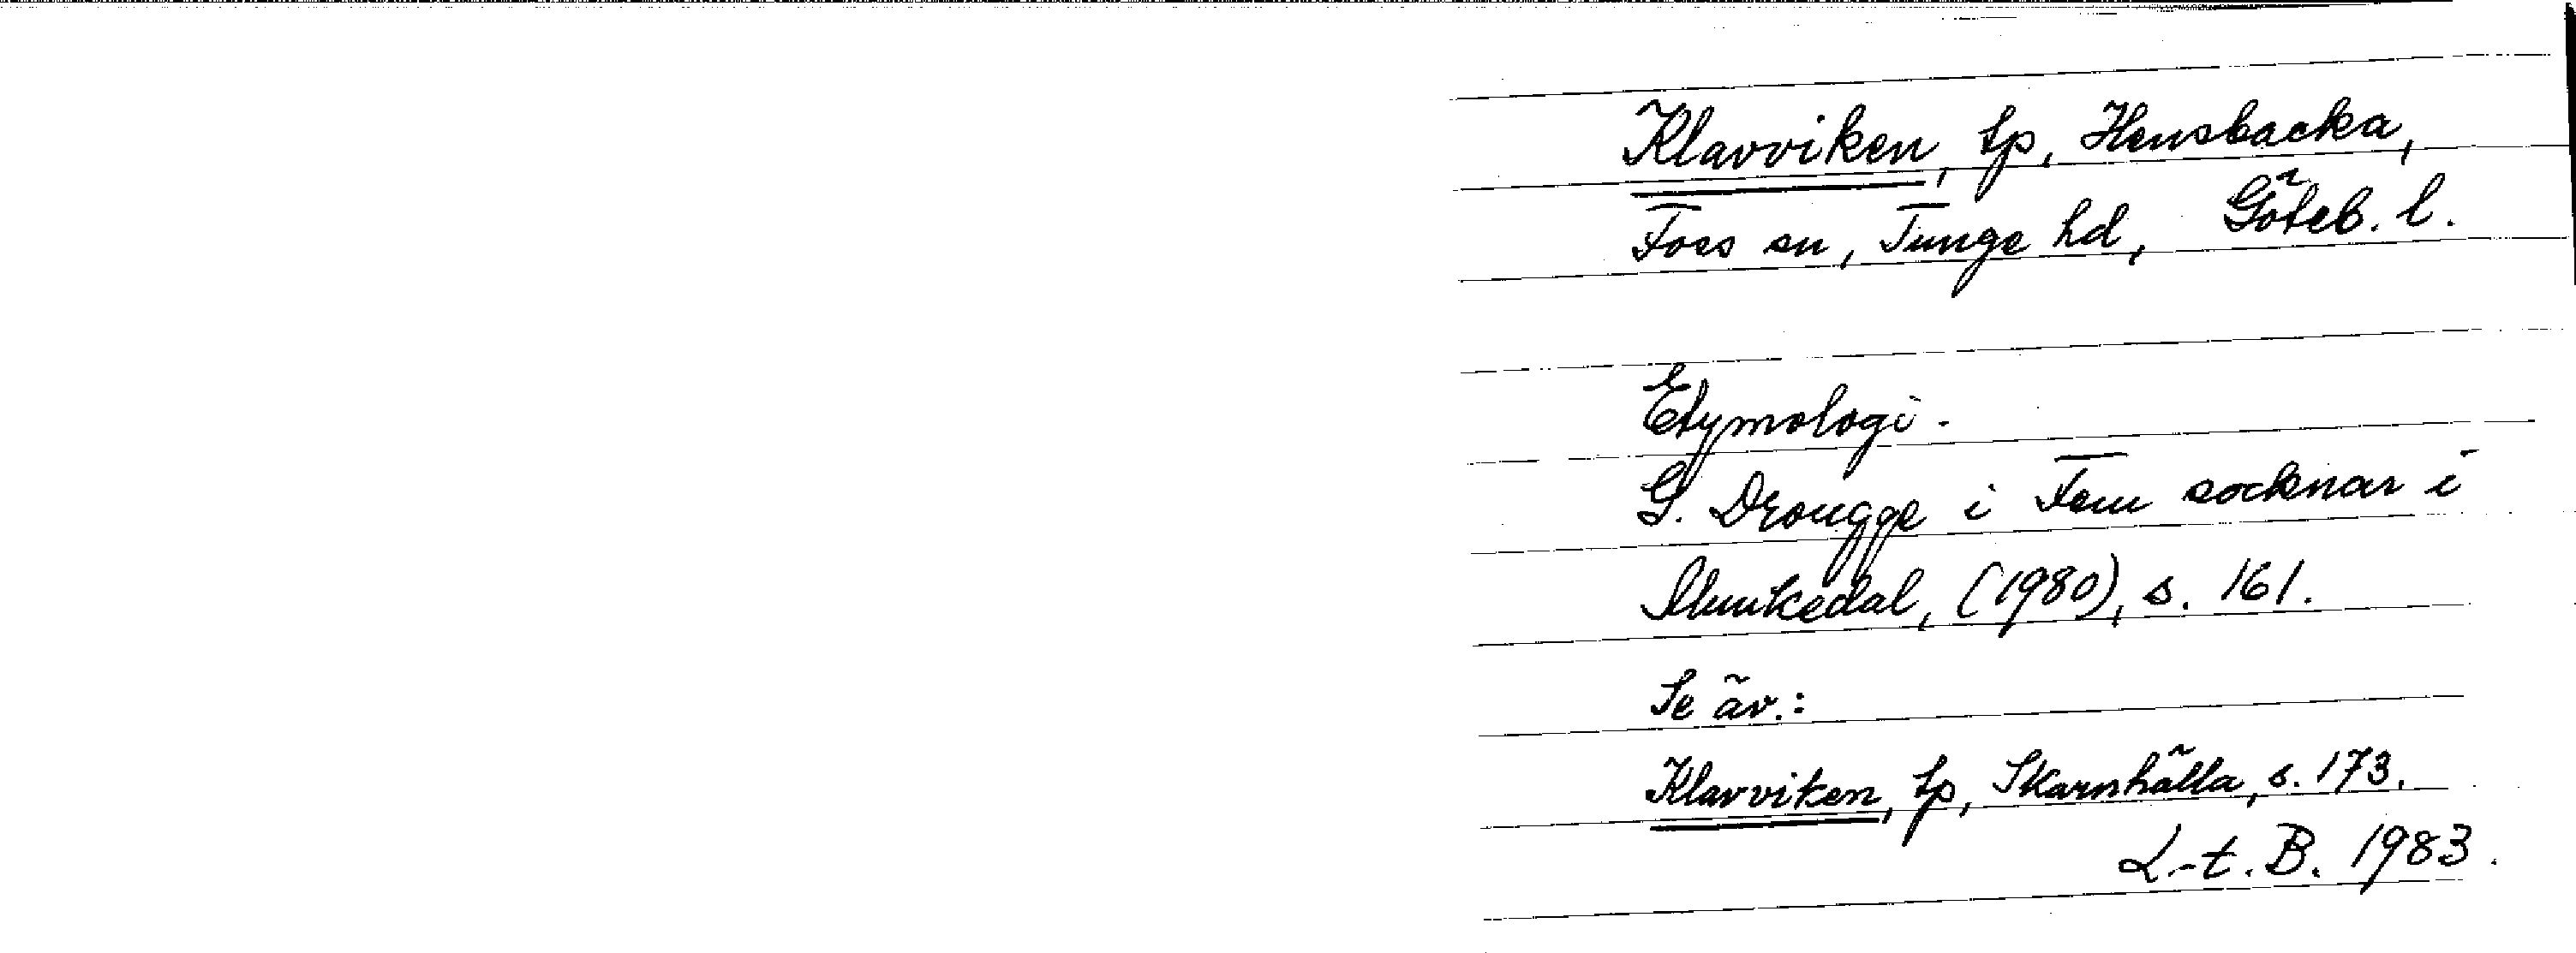 Klavviken, tp, Hensbacka,
Foss sn, Tunge hd, Göteb. l.
Etymologi.
G. Drougge i Fem socknar i
Munkedal, (1980), s. 161.
Se äv.:
Klavviken, tp, Skarnhälla, s. 173.
L-t. B. 1983.